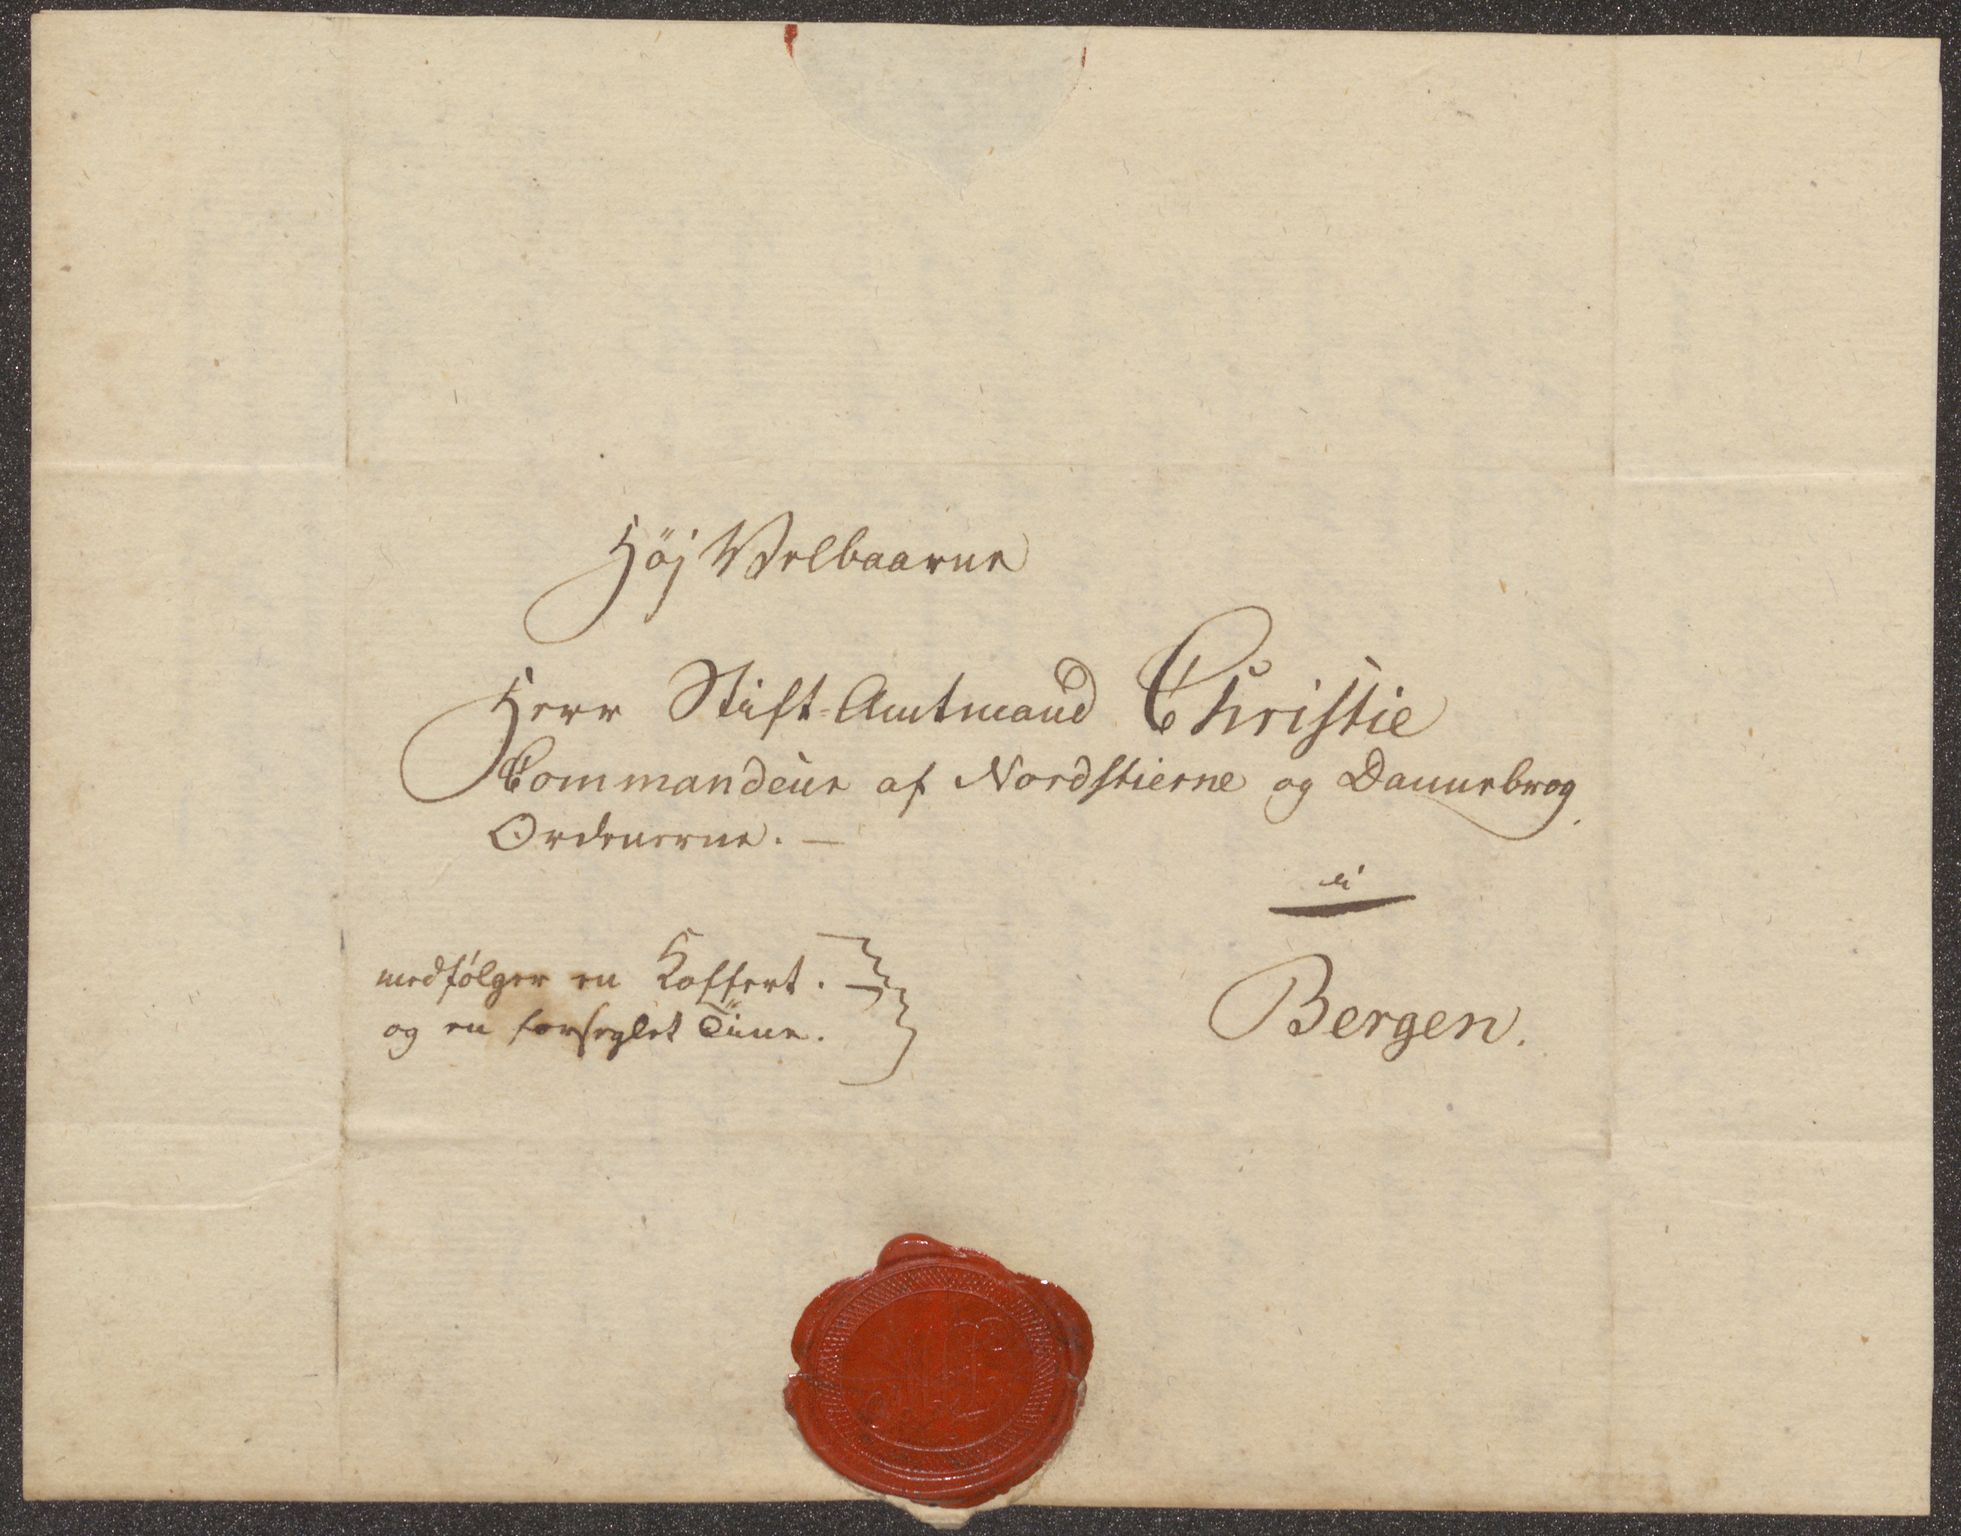 Höj Velbaarne
Herr Stift-Amtmand Christie
Commandeur af Nordstierne og Dannebrog
Ordenerne. —
i
Bergen.
medfölger en Koffert. —
og en forseglet Tiine.